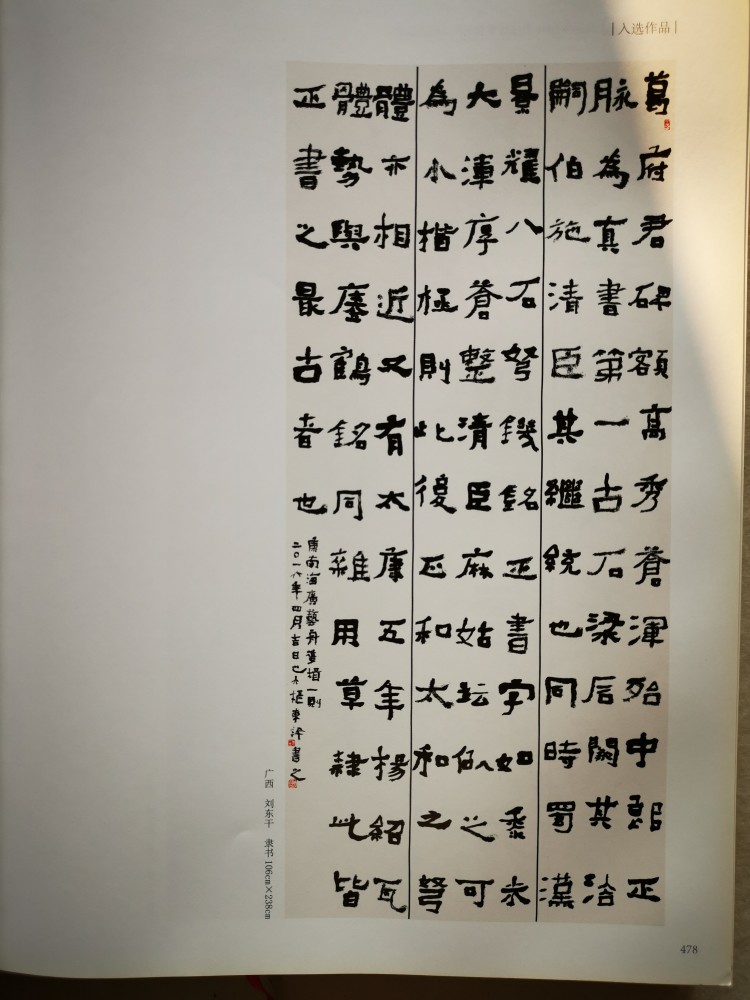 入选作品
葛府君碑額高秀蒼渾殆中郎正
脉為真書第一古石梁后闕其洽
嗣伯施清臣其繼統也同時蜀漢
景耀八石弩鐖銘正書字如黍米
大渾厚蒼整清臣麻姑坛似之可
為小楷極則此後正和太和之弩
體亦相近又有太康五年楊紹瓦
體勢與瘞鶴銘同雜用草隸此皆
正書之最古者也
康南海廣藝舟雙楫一則
二〇一八年四月吉日 東 書之
广西 刘东干 隶书 106cm×238cm
478